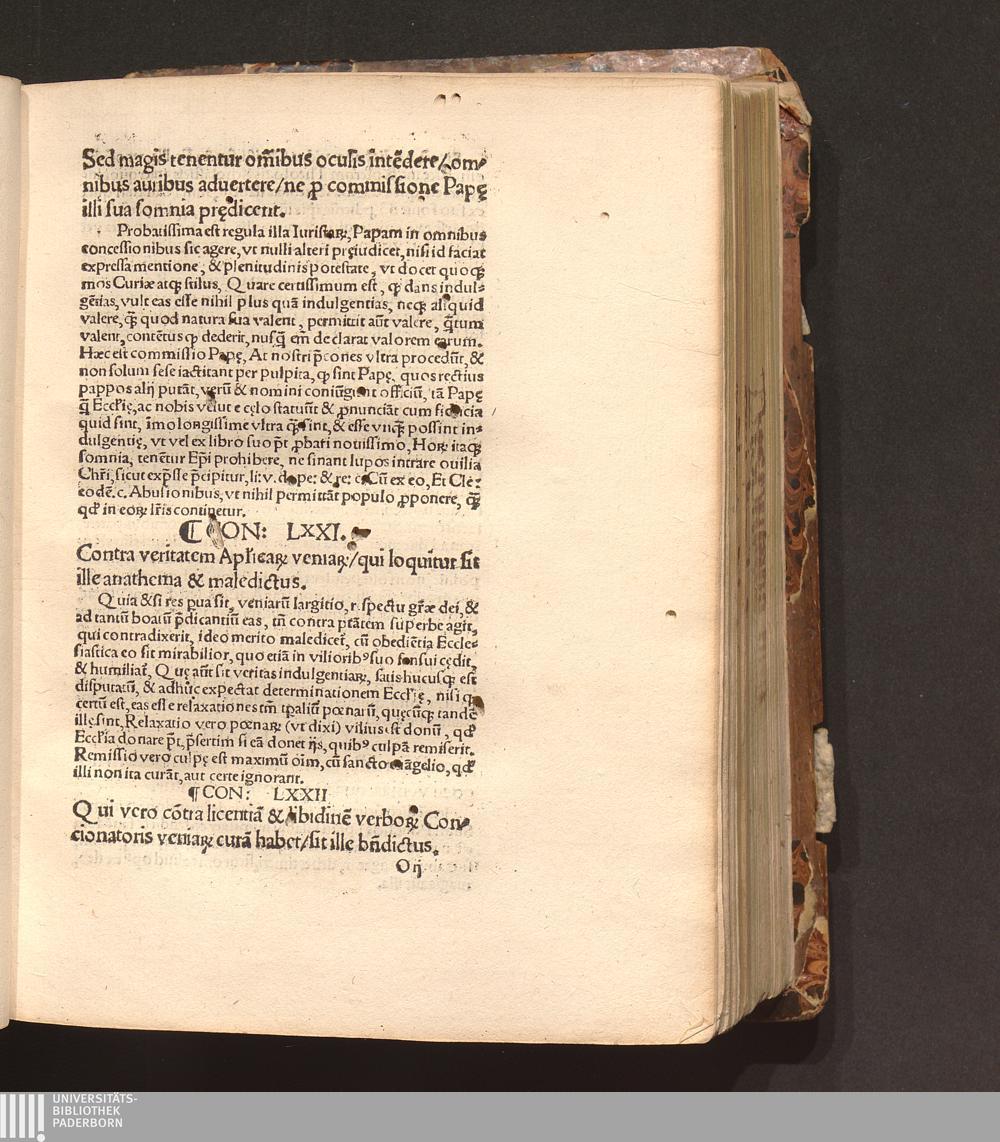 Sed magis tenentur om̃ibus oculis intẽdere/om-
nibus auribus aduertere/ne ꝓ commissione Papę
illi sua somnia prędicent.
Probatissima est regula illa Iuristaꝝ, Papam in omnibus
concessionibus sic agere, vt nulli alteri pręiudicet, nisi id faciat
expressa mentione, & plenitudinis potestate, vt docet quoqꝫ
mos Curiæ atqꝫ stilus, Quare certissimum est, ꝙ dans indul-
gẽtias, vult eas esse nihil plus quã indulgentias, neqꝫ aliquid
valere, ꝙ̃ quod natura sua valent, permittit aũt valere, q̃tum
valent, contẽtus ꝙ dederit, nusq̃ em̃ declarat valorem earum.
Hæc est commissio Papę, At nostri p̃cones vltra procedũt, &
non solum sese iactitant per pulpita, ꝙ sint Papę, quos rectius
pappos alij putãt, verũ & nomini coniũgunt officiũ, tã Papę
q̃ Eccl'ię, ac nobis velut e cęlo statuũt & ꝓnunciãt cum fiducia
quid sint, ĩmo longissime vltra ꝙ̃ sint, & esse vnqꝫ possint in-
dulgentię, vt vel ex libro suo p̃t ꝓbati nouissimo, Hoꝝ itaqꝫ
somnia, tenẽtur Ep̃i prohibere, ne sinant lupos intrare ouilia
Chr̃i, sicut exp̃sse p̃cipitur, li: v. de pe: & re: c. Cũ ex eo, Et Cle:
eodẽ. c. Abusionibus, vt nihil permittãt populo ꝓponere, ꝙ̃
qd' in eoꝝ lr̃is continetur.
¶ CON: LXXI.
Contra veritatem Apl'icaꝝ veniaꝝ/qui loquitur sit
ille anathema & maledictus.
Quia & si res parua sit, veniarũ largitio, respectu gr̃æ dei, &
ad tantũ boatũ p̃dicantiũ eas, tñ contra ptãtem superbe agit,
qui contradixerit, ideo merito maledicet̃, cũ obediẽtia Eccle-
siastica eo sit mirabilior, quo etiã in viliorib⁹ suo sensui cędit,
& humiliat̃, Quę aũt sit veritas indulgentiaꝝ, satis hucusqꝫ est
disputatũ, & adhuc expectat determinationem Eccl'ię, nisi ꝙ
certũ est, eas esse relaxationes tm̃ tp̃aliũ pœnarũ, quęcũqꝫ tandẽ
illę sint, Relaxatio vero pœnaꝝ (vt dixi) vilius est donũ, qd'
Eccl'ia donare p̃t, p̃sertim si eã donet ijs, quib⁹ culpã remiserit.
Remissio vero culpę est maximũ oĩm, cũ sancto euãgelio, qd'
illi non ita curãt, aut certe ignorant.
¶ CON: LXXII
Qui vero cõtra licentiã & libidinẽ verboꝝ Con-
cionatoris veniaꝝ curã habet/sit ille bñdictus.
O ij
UNIVERSITÄTS-
BIBLIOTHEK
PADERBORN